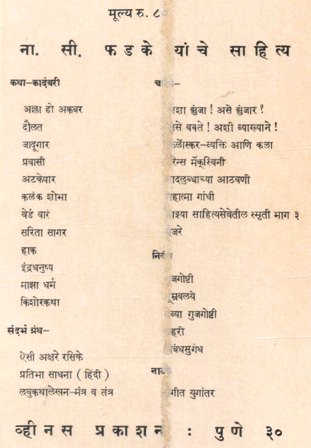 मूल्य रु.
ना. सी. फडके यांचे साहित्य
कथा-कादंबरी
अल्ला हो अकबर
दौलत
जादूगार
प्रवासी
अटकेपार
कलंक शोभा
वेडे वारं
सरिता सागर
हाक
इंद्रधनुष्य
माझा धर्म
किशोरकथा
संदर्भ ग्रंथ-
ऐसी अक्षरे रसिके
प्रतिभा साधना ( हिंदी )
लघुकथालेखन-मंत्र व तंत्र
अशा झुंजा ! असे झुंजार ?
असे वक्ते ! अशी व्याख्याने !
किर्लोस्कर-व्यक्ति आणि कला
टेरेन्स मॅक्स्विनी
दादलुब्धाच्या आठवणी
महात्मा गांधी
माझ्या साहित्यसेवेतील स्मृती भाग ३
गुजगोष्टी
धूम्रवलये
नव्या गुजगोष्टी
लहरी
निबंधसुगंध
संगीत युगांतर
व्हीनस प्रकाशन : पुणे ३०